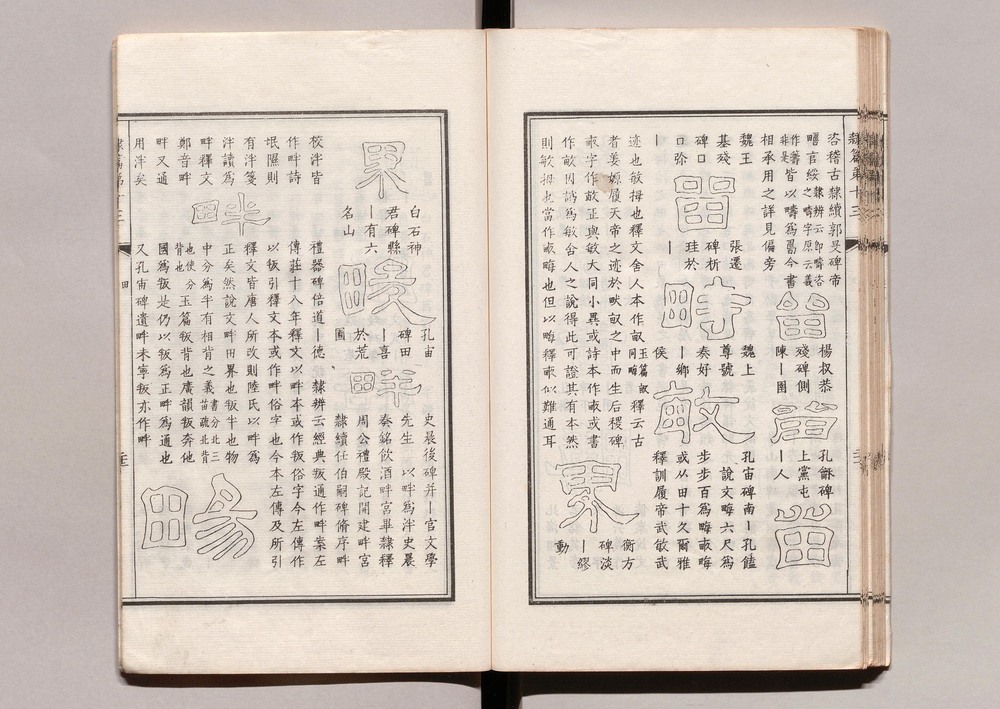 隸篇弟十三
咨稽古隸續郭旻碑帝
疇言綏
隸辨云即疇咨
之疇字原云義
作籌
非是
皆以疇爲𠷎今書
相承用之詳見偏旁
畱
楊叔恭
殘碑側
陳｜圉
畱
孔龢碑
上黨屯
｜人
畱
魏王
基殘
碑口
口昣
｜
畱
張遷
碑析
珪於
｜
畤
魏上
尊號
奏好
｜鄉
侯
畞
孔宙碑南｜孔饁
說文畮六尺爲
步步百爲畮畞畮
或从田十久爾雅
釋訓履帝武敏武
迹也敏拇也釋文舍人本作畞
玉篇畞
同畮
釋云古
者姜嫄履天帝之迹於畎畞之中而生后稷碑
畞字作敏正與敏大同小異或詩本作畞或書
作敏因譌爲敏舍人之說得此可證其有本然
則敏拇也當作畞畮也但以畮釋畞似難通耳
界
衡方
碑淡
｜繆
動
界
白石神
君碑縣
｜有六
名山
畼
孔宙
碑田
｜喜
於荒
圃
畔
史晨後碑并｜官文學
先生 以畔爲泮史晨
奏銘飲酒畔宮畢隸釋
周公禮殿記開建畔宮
隸續任伯嗣碑脩序畔
校泮皆
作畔詩
氓隰則
有泮箋
泮讀爲
畔釋文
鄭音畔
畔又通
用泮矣
畔
禮器碑倍道｜德 隸辨云經典叛通作畔案左
傳莊十八年釋文以畔本或作叛俗字今左傳作
以叛引釋文本或作畔俗字也今本左傳及所引
釋文皆唐人所改則陸氏以畔爲
正矣然說文畔田界也叛半也物
中分爲半有相背之義
書分北三
苗疏北背
背也
也使分
玉篇叛背也廣韻叛奔他
國爲叛是仍以叛爲正畔爲通也
又孔宙碑遺畔未寧叛亦作畔
畼
田